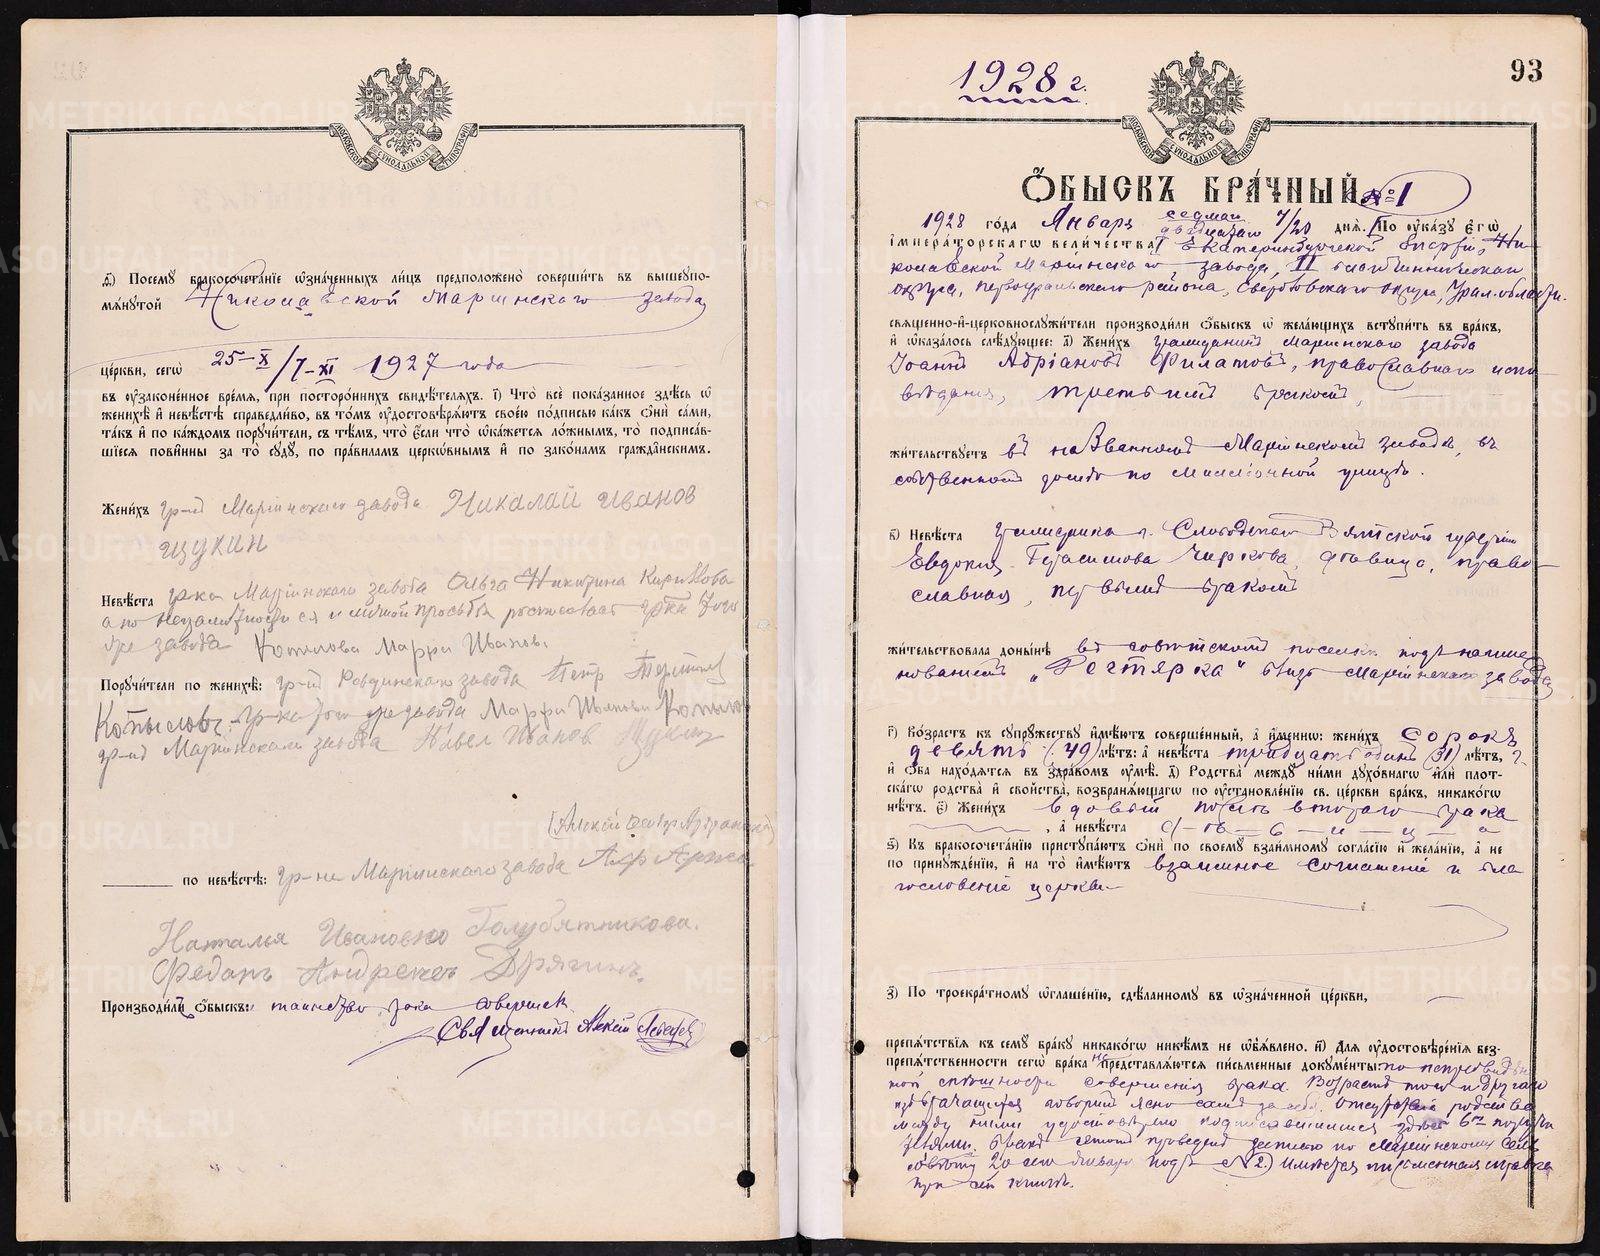 д҃) Посемꙋ̀ бракосочета́нїе ѡ҆зна́ченныхъ ли́цъ предположено̀ соверши́ть въ вышеꙋпо-
мѧ́нꙋтой Николаевской Мариинскаго завода
це́ркви, сегѡ̀ 25-X/7-XI 1927 года
въ ᲂу҆зако́ненное вре́мѧ, при посторо́ннихъ свидѣ́телѧхъ. і҃) Что̀ всѐ пока́занное здѣ́сь ѡ҆
женихѣ̀ и҆ невѣ́стѣ справедли́во, въ то́мъ ᲂу҆достовѣрѧ́ютъ свое́ю по́дписью ка́къ ѻ҆нѝ са́ми,
та́къ и҆ по ка́ждомъ порꙋчи́тели, съ тѣ́мъ, что̀ є҆́сли что̀ ѡ҆ка́жетсѧ ло́жнымъ, то̀ подписа́в-
шїесѧ пови́нны за то̀ сꙋдꙋ̀, по пра́виламъ церко́внымъ и҆ по зако́намъ гражда́нскимъ.
Жени́хъ гр-нъ Марiинскаго завода Николай Иванов
Щукин
Невѣ́ста гр-ка Марiинскаго завода Ольга Никитина Кирилова
а по неграмотности ея и личной просьбѣ гр-ка того
же завода Копылова Марфа Иванов.
Порꙋчи́тели по женихѣ̀: гр-нъ Ревдинскаго завода Петр
Копылов. гр-ка того же завода Марфа Иванова Копылов
гр-нъ Марiинскаго завода Павел Иванов Щукин
по невѣ́стѣ: гр-не Марiинскаго завода
Наталья Ивановно Голубятникова.
Федотъ Андреевъ Дрягинъ.
Производи́ли ѻ҆́быскъ: таинство брака совершил
Священникъ Алексiй Лебедев
1928 г.
93
МОСКОВСКОЙ СѴНОДАЛЬНОЙ ТИПОГРАФIИ
Ѻ҆́БЫСКЪ БРА́ЧНЫЙ. № 1
1928 го́да Января седмаго двадцатаго 7/20 днѧ̀. По ᲂу҆ка́зꙋ є҆гѡ̀
і҆мпера́торскагѡ вели́чества, Екатеринбургской Епархiи, Ни-
колаевской Марiинскаго завода, II благочинническаго
округа, Первоуральскаго района, Свердловскаго округа, Урал. области.
свѧще́нно-и҆-церковнослꙋжи́тели производи́ли ѻ҆́быскъ ѡ҆ жела́ющихъ встꙋпи́ть въ бра́къ,
и҆ ѡ҆каза́лось слѣ́дꙋющее: а҃) Жени́хъ гражданинъ Марiинскаго завода
Iоаннъ Адрiановъ Филатовъ, православнаго испо-
вѣданiя, третьимъ бракомъ,
жи́тельствꙋетъ въ названномъ Марiинскомъ заводѣ, въ
собственномъ домѣ по улицѣ.
в҃) Невѣ́ста гражданка г. Слободского Вятской губернiи
Евдокiя Герасимова Чиркова, дѣвица, право-
славная, первымъ бракомъ
жи́тельствовала доны́нѣ въ совѣтскомъ поселкѣ подъ наиме-
нованiемъ „Рехтярка“ близъ Марiинскаго завода
г҃) Во́зрастъ къ сꙋпрꙋ́жествꙋ и҆мѣ́ютъ соверше́нный, а҆ и҆́меннѡ: жени́хъ сорокъ
девять (49) лѣ́тъ: а҆ невѣ́ста тридцать одинъ (31) лѣ́тъ,
и҆ ѻ҆́ба нахо́дѧтсѧ въ здра́вомъ ᲂу҆мѣ̀. д҃) Родства̀ междꙋ̀ ни́ми дꙋхо́внагѡ и҆лѝ плот-
ска́гѡ родства̀ и҆ сво́йства, возбранѧ́ющагѡ по ᲂу҆становле́нїю св. це́ркви бра́къ, никако́гѡ
нѣ́тъ. є҃) Жени́хъ вдовый послѣ второго брака
, а҆ невѣ́ста д-ѣв-и-ц-а
ѕ҃) Къ бракосочета́нїю пристꙋпа́ютъ ѻ҆нѝ по своемꙋ̀ взаи́мномꙋ согла́сїю и҆ жела́нїю, а҆ не
по принꙋжде́нїю, и҆ на то̀ и҆мѣ́ютъ взаимное соглашенiе и бла
гословенiе церкви
з҃) По троекра́тномꙋ ѡ҆глаше́нїю, сдѣ́ланномꙋ въ ѡ҆зна́ченной це́ркви,
препѧ́тствїѧ къ семꙋ̀ бра́кꙋ никако́гѡ никѣ́мъ не ѡ҆б̾ѧ́влено. и҃) Длѧ̀ ᲂу҆достовѣре́нїѧ без-
препѧ́тственности сегѡ̀ бра́ка не представлѧ́ютсѧ пи́сьменные докꙋме́нты: по непредвидѣн
ной спѣшности совершенiя брака. Возрастъ того и другаго
говоритъ ясно самъ за себя. Отсутствiе родства
между ними удостовѣрено подписавшимися здѣсь
Бракъ проведенъ записью по Марiинскому сель
совѣту 20-го Января подъ № 2. Имѣется письменная справка
при сей книгѣ.